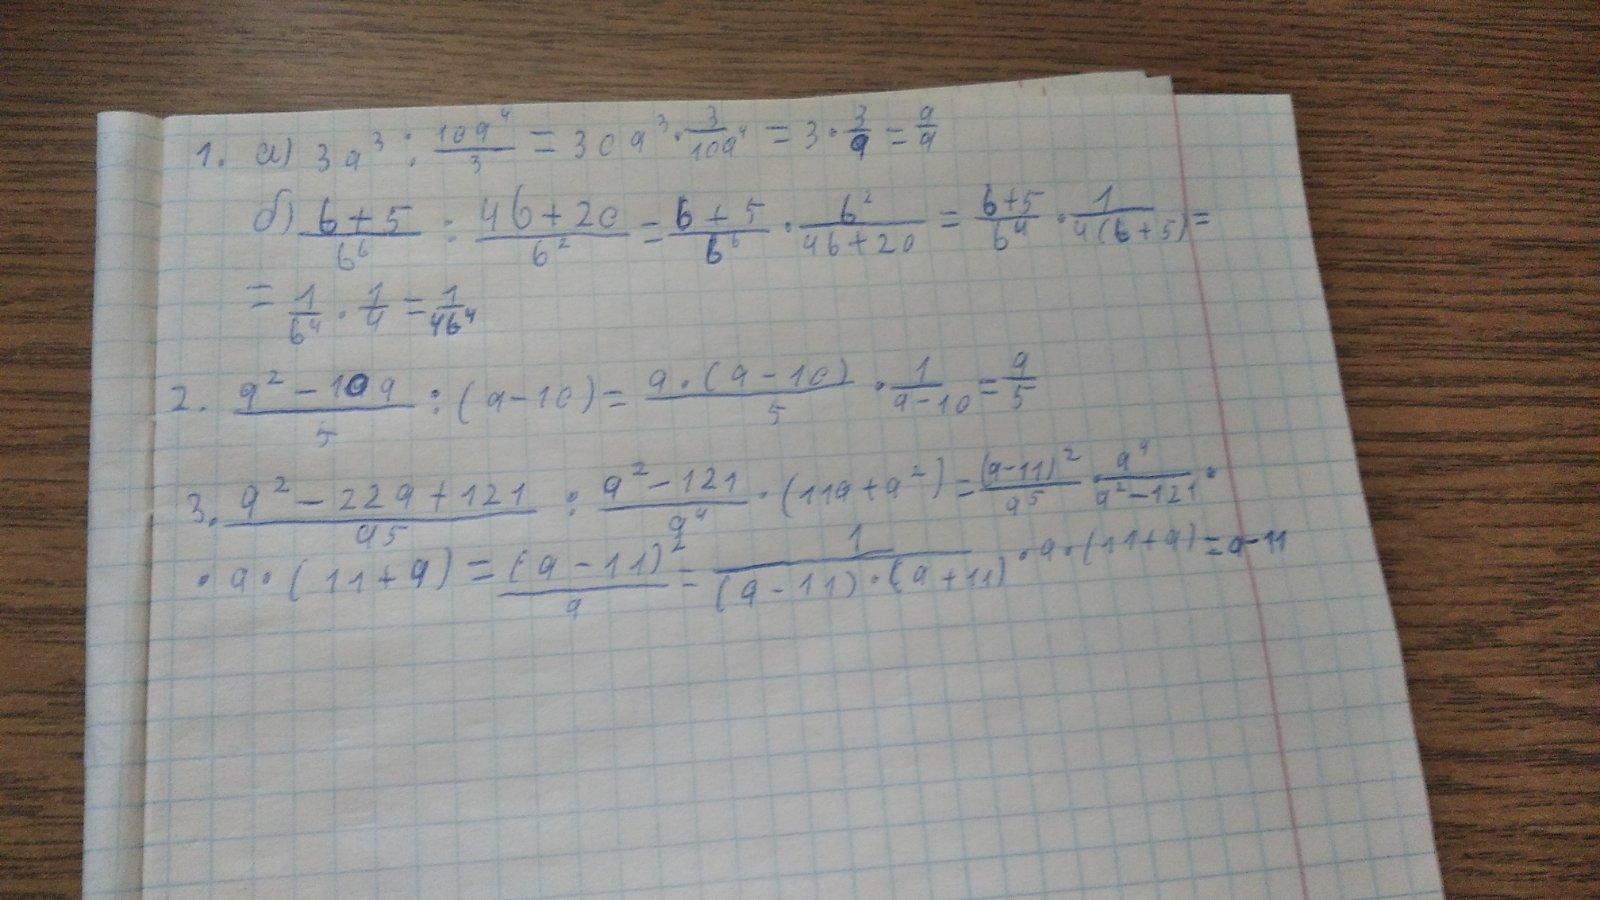 1. а) 3a³ : 10a⁴/3 = 30a³ · 3/10a⁴ = 3 · 3/a = 9/a
б) b+5/b⁶ : 4b+20/b² = b+5/b⁶ · b²/4b+20 = b+5/b⁴ · 1/4(b+5) =
= 1/b⁴ · 1/4 = 1/4b⁴
2. a²-10a/5 : (a-10) = a·(a-10)/5 · 1/a-10 = a/5
3. a²-22a+121/a5 : a²-121/a⁴ · (11a+a²) = (a-11)²/a5 · a⁴/a²-121 ·
· a · (11+a) = (a-11)²/a - 1/(a-11)·(a+11) · a · (11+a) = a-11